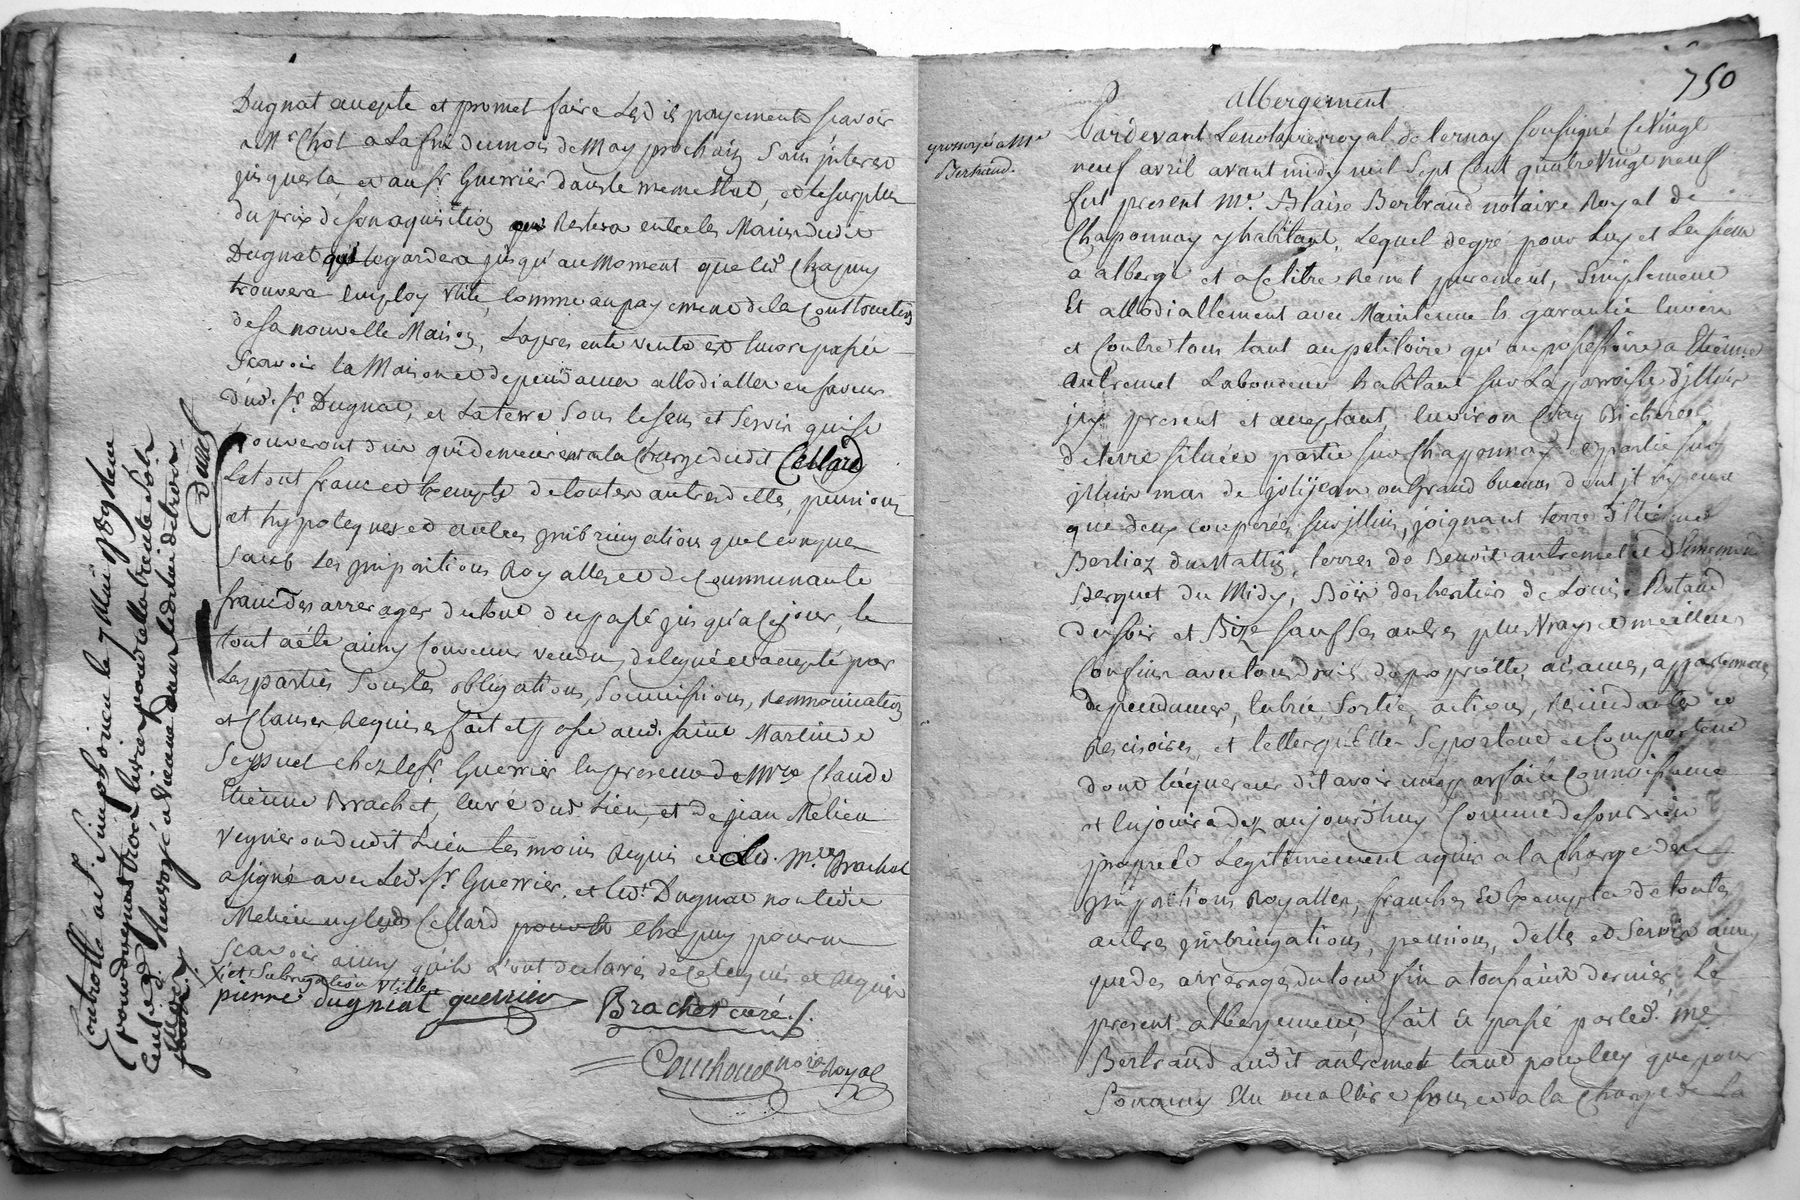 Dugnat accepte et promet faire Lesd is payements scavoir
a Mr Chol a La fin du mois de May prochain Sans jnterest
jusques la, et au sr Guerrier dans le meme Etat, et le surplus
du prix de son aquisition Restera entre les Mains dudit
Dugnat qui le gardera jusqu'au Moment que led Chapuy
trouvera Employ Utile, Comme au payement de la Construction
de sa nouvelle Maison, La presente vente est
Scavoir La Maison et dependances allodialles en faveur
dud. Sr Dugnat, et La terre Sous le sens et Servis qui se
trouveront dus qui demeurent a la Charge dudit Cellard
Le tout franc et Exempts de toutes autres dettes, pensions
et hypoteques et autres jmbringations quelconques
Sauf Les jmpositions Royalles et de Communauté
franc des arrerages du tout du passé jusqu'a ce jour, le
tout a été ainsy Convenu vendu, delegué et accepté par
Les parties Sous les obligations, Soumissions, Renonciations
et Clauses Requises fait et passé aud. Saint Martin de
Seyssuel chez le sr Guerrier En presence de Mre Claude
Etienne Brachet, Curé dud. Lieu, et de jean Melieu
Vigneron dudit Lieu temoins Requis et Led. Mre Brachet
a signé avec Led. Sr Guerrier, et led. Dugnat non ledit
Melieu ny lesd Cellard Chapuy pour ne
Scavoir ainsy qu'ils L'ont declaré de ce Enquis et Requis
X et Subrogation Utille
pierre dugniat guerrier Brachet curé
Couchoud noire Royal
Controllé a St. Simphorien le 7 Mai 1789
Reçu
pour droit trois livres
Cent. d. Renvoyé a Vienne pour led. droit de trois
750
albergement
grossoyé a Me
Bertrand.
Pardevant Le notaire royal de ternay soussigné Ce Vingt
neuf avril avant midy mil Sept Cent quatre Vingt neuf
fut present Me. Blaise Bertrand notaire Royal de
Chaponnay y habitant, Lequel de gré pour Luy et Les siens
a albergé et a Ce titre Remet purement, Simplement
Et allodiallement avec Maintenue et garantie Envers
et Contre tous tant au petitoire qu'au possessoire a Etienne
autremet Laboureur habitant sur La parroisse d'jllins
jcy present et acceptant, Environ Cinq Bicherées
de terre située partie sur Chaponnay et partie sur
jllins mas de ou Grand buenos dont jl n'y en a
que deux couperées sur jllins, joignant terre d'Etienne
Berlioz du Mattin, terres de Benoit autremet et
Serquet du Midy, Bois des heritiers de Louis Rostaid
du soir et Bize sauf Ses autres plus Vrays et meilleurs
Confins avec tous droits de proprietté, aisances, appartenances
dependances, Entrée Sortie, actions, Rescindantes et
Rescisoires, et telle qu'Elle Se portent et Comportent
dont l'aquereur dit avoir une parfaite Connoissance
et En jouira dez aujourd'huy Comme de son bien
propre et Legitimement aquis a la Charge des
jmpositions Royalles, franches et Exempte de toutes
autres jmbringations, pensions, dettes et Servis ainsy
que des arrerages du tout fin a toussaint dernier, Le
present albergement, fait Et passé par led. Me
Bertrand audit autremet tant pour luy que pour
a la Charge de La